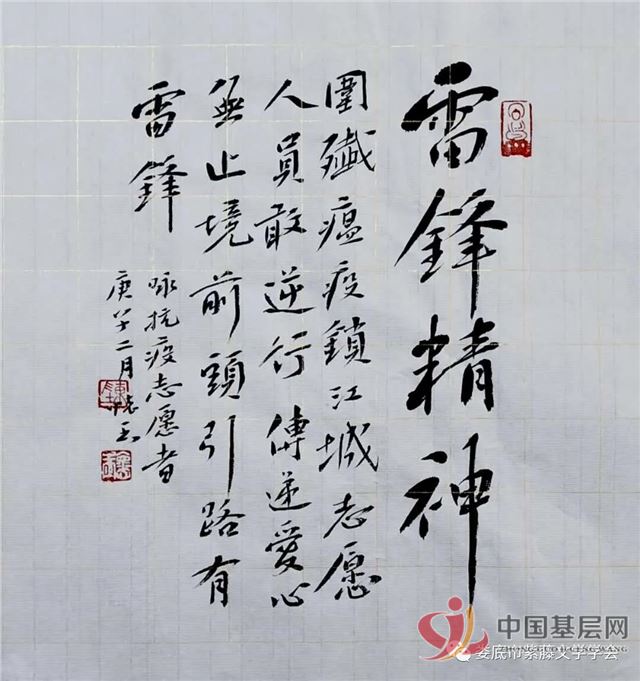 雷鋒精神
圍殲瘟疫鎖江城志愿
人員敢逆行傳遞愛心
無止境前頭引路有
雷鋒
咏抗疫志愿者
庚子二月
中国基层网
娄底市紫藤文学学会